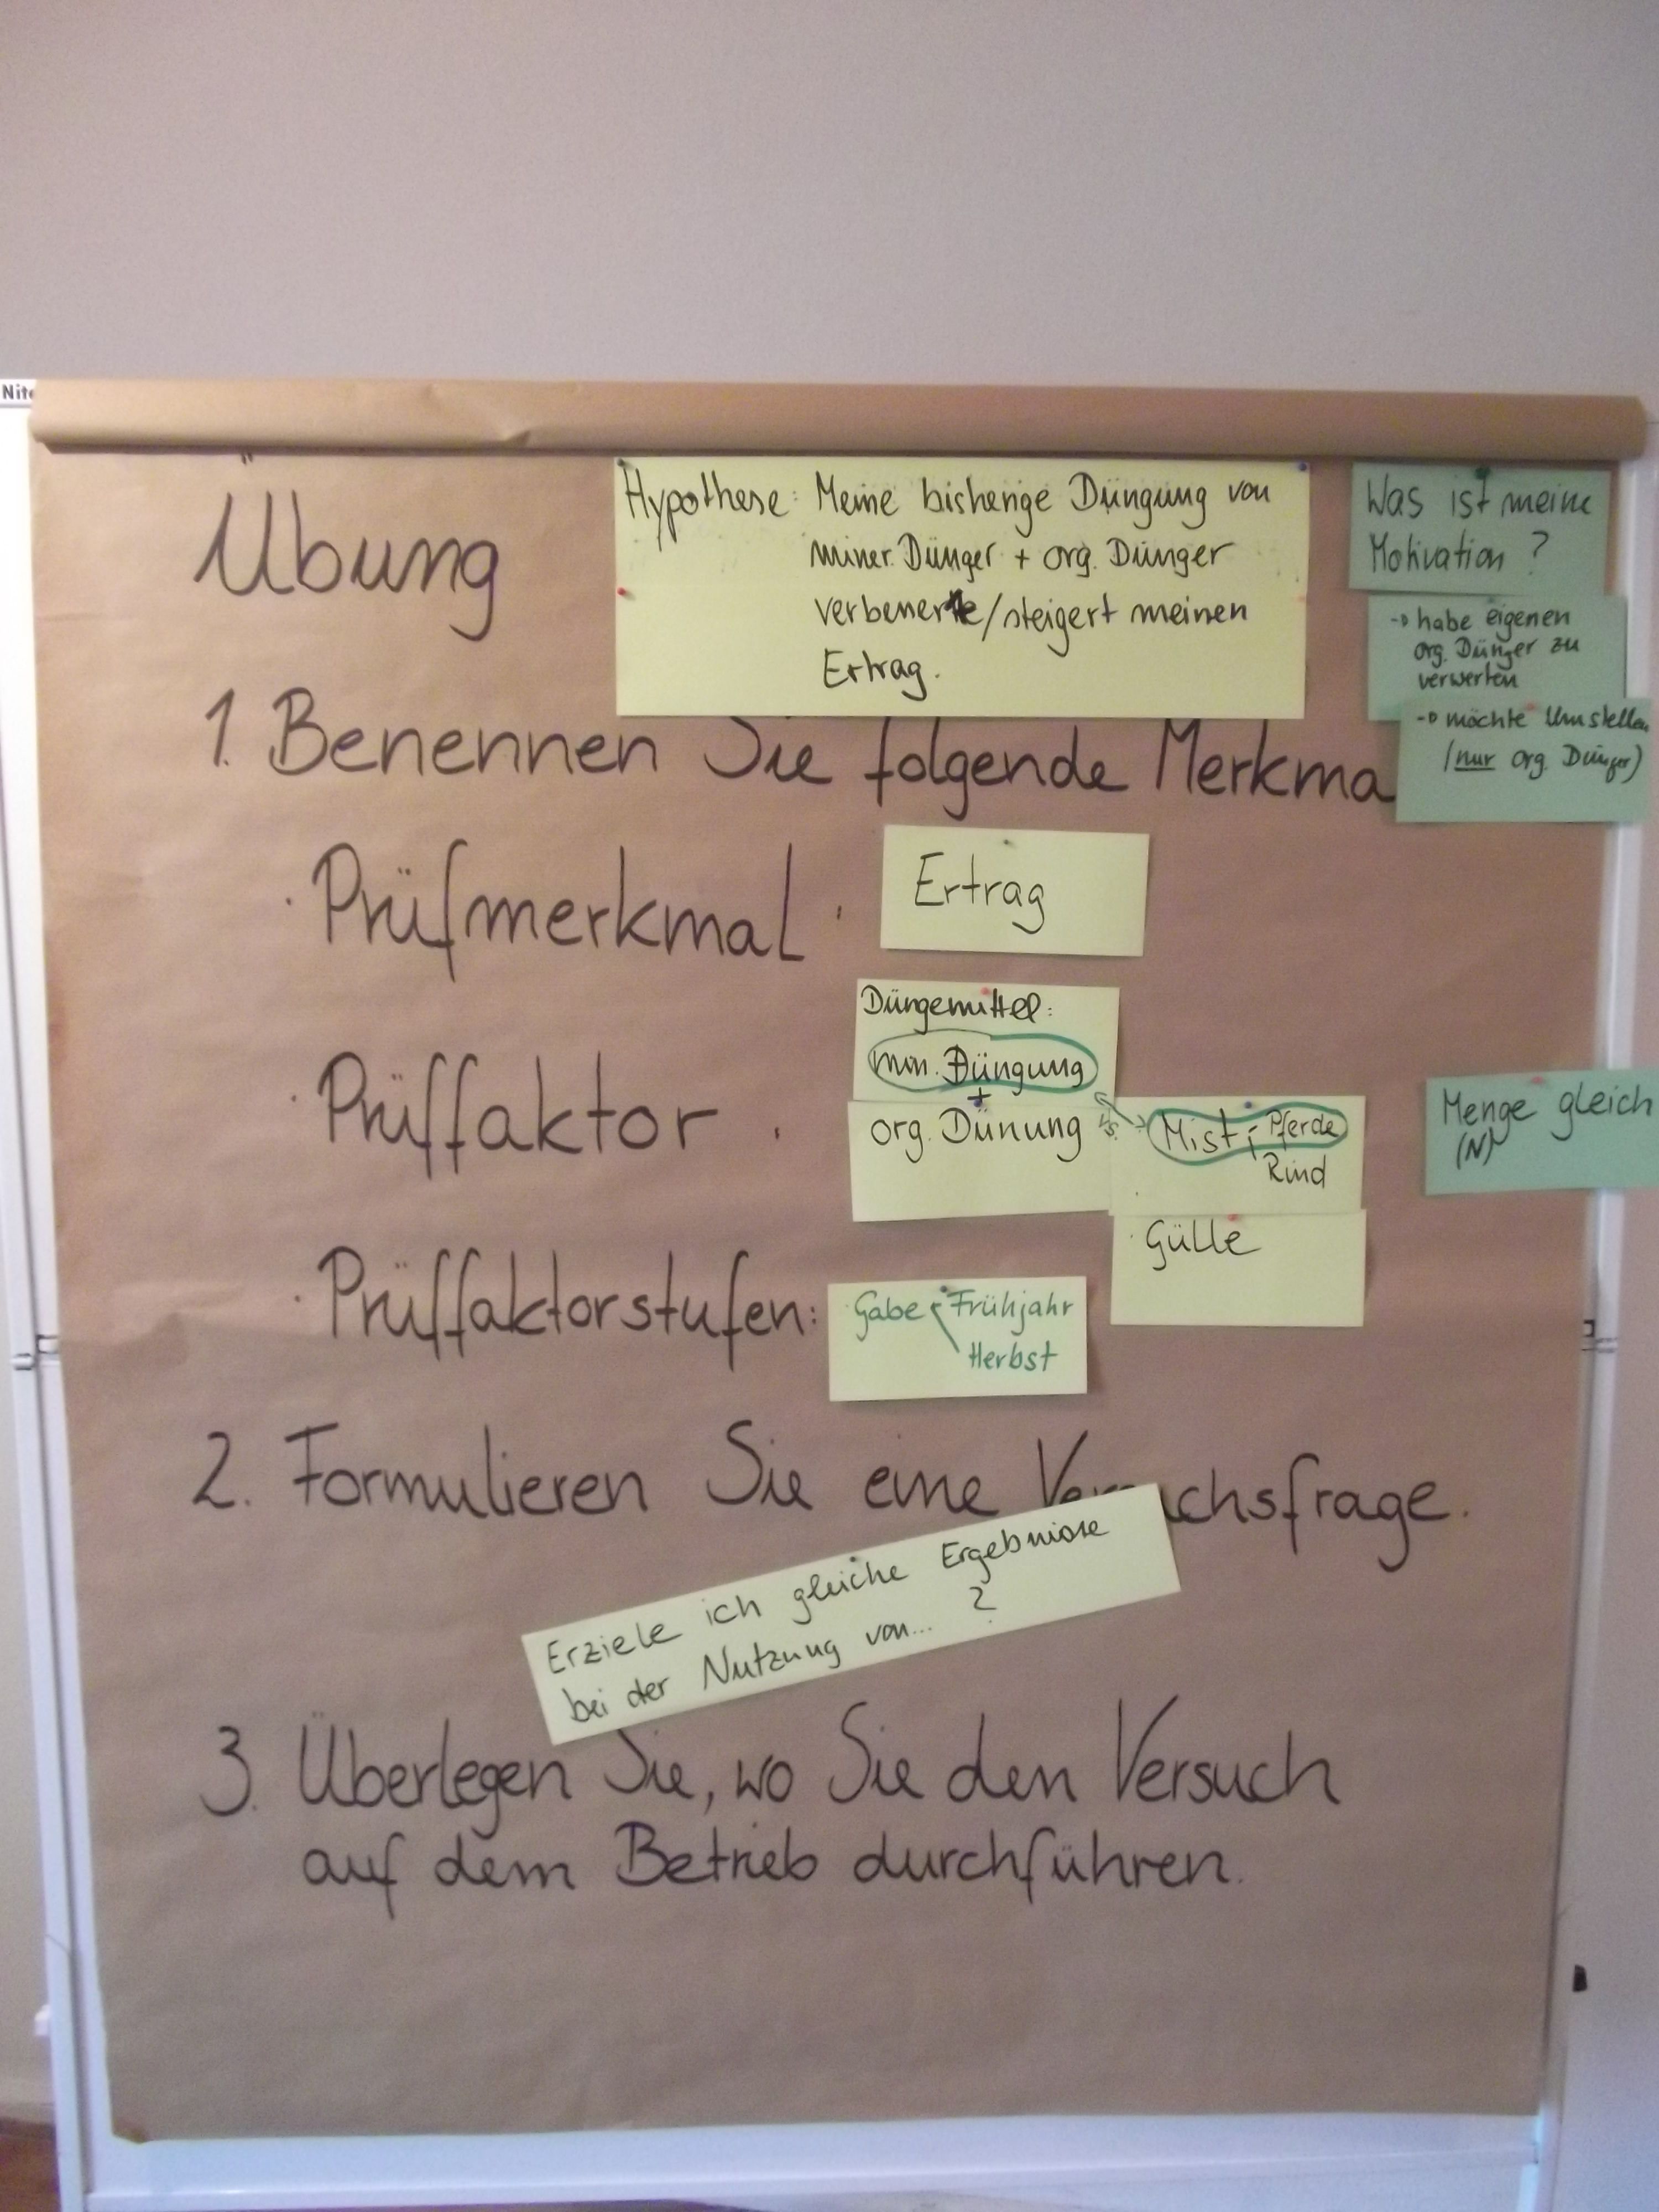 Nite
Übung
Hypothese: Meine bisherige Düngung von
miner. Dünger + org. Dünger
verbessert/steigert meinen
Ertrag.
Was ist meine
Motivation?
-> habe eigenen
org. Dünger zu
verwerten
-> möchte Umstellen
(nur org. Dünger)
1. Benennen Sie folgende Merkma
· Prüfmerkmal:
Ertrag
· Prüffaktor:
Düngemittel:
min. Düngung
+
org. Dünung
vs.
Mist; Pferde
Rind
Gülle
Menge gleich
(N)
· Prüffaktorstufen:
Gabe Frühjahr
Herbst
2. Formulieren Sie eine Versuchsfrage.
Erziele ich gleiche Ergebnisse
bei der Nutzung von... ?
3. Überlegen Sie, wo Sie den Versuch
auf dem Betrieb durchführen.